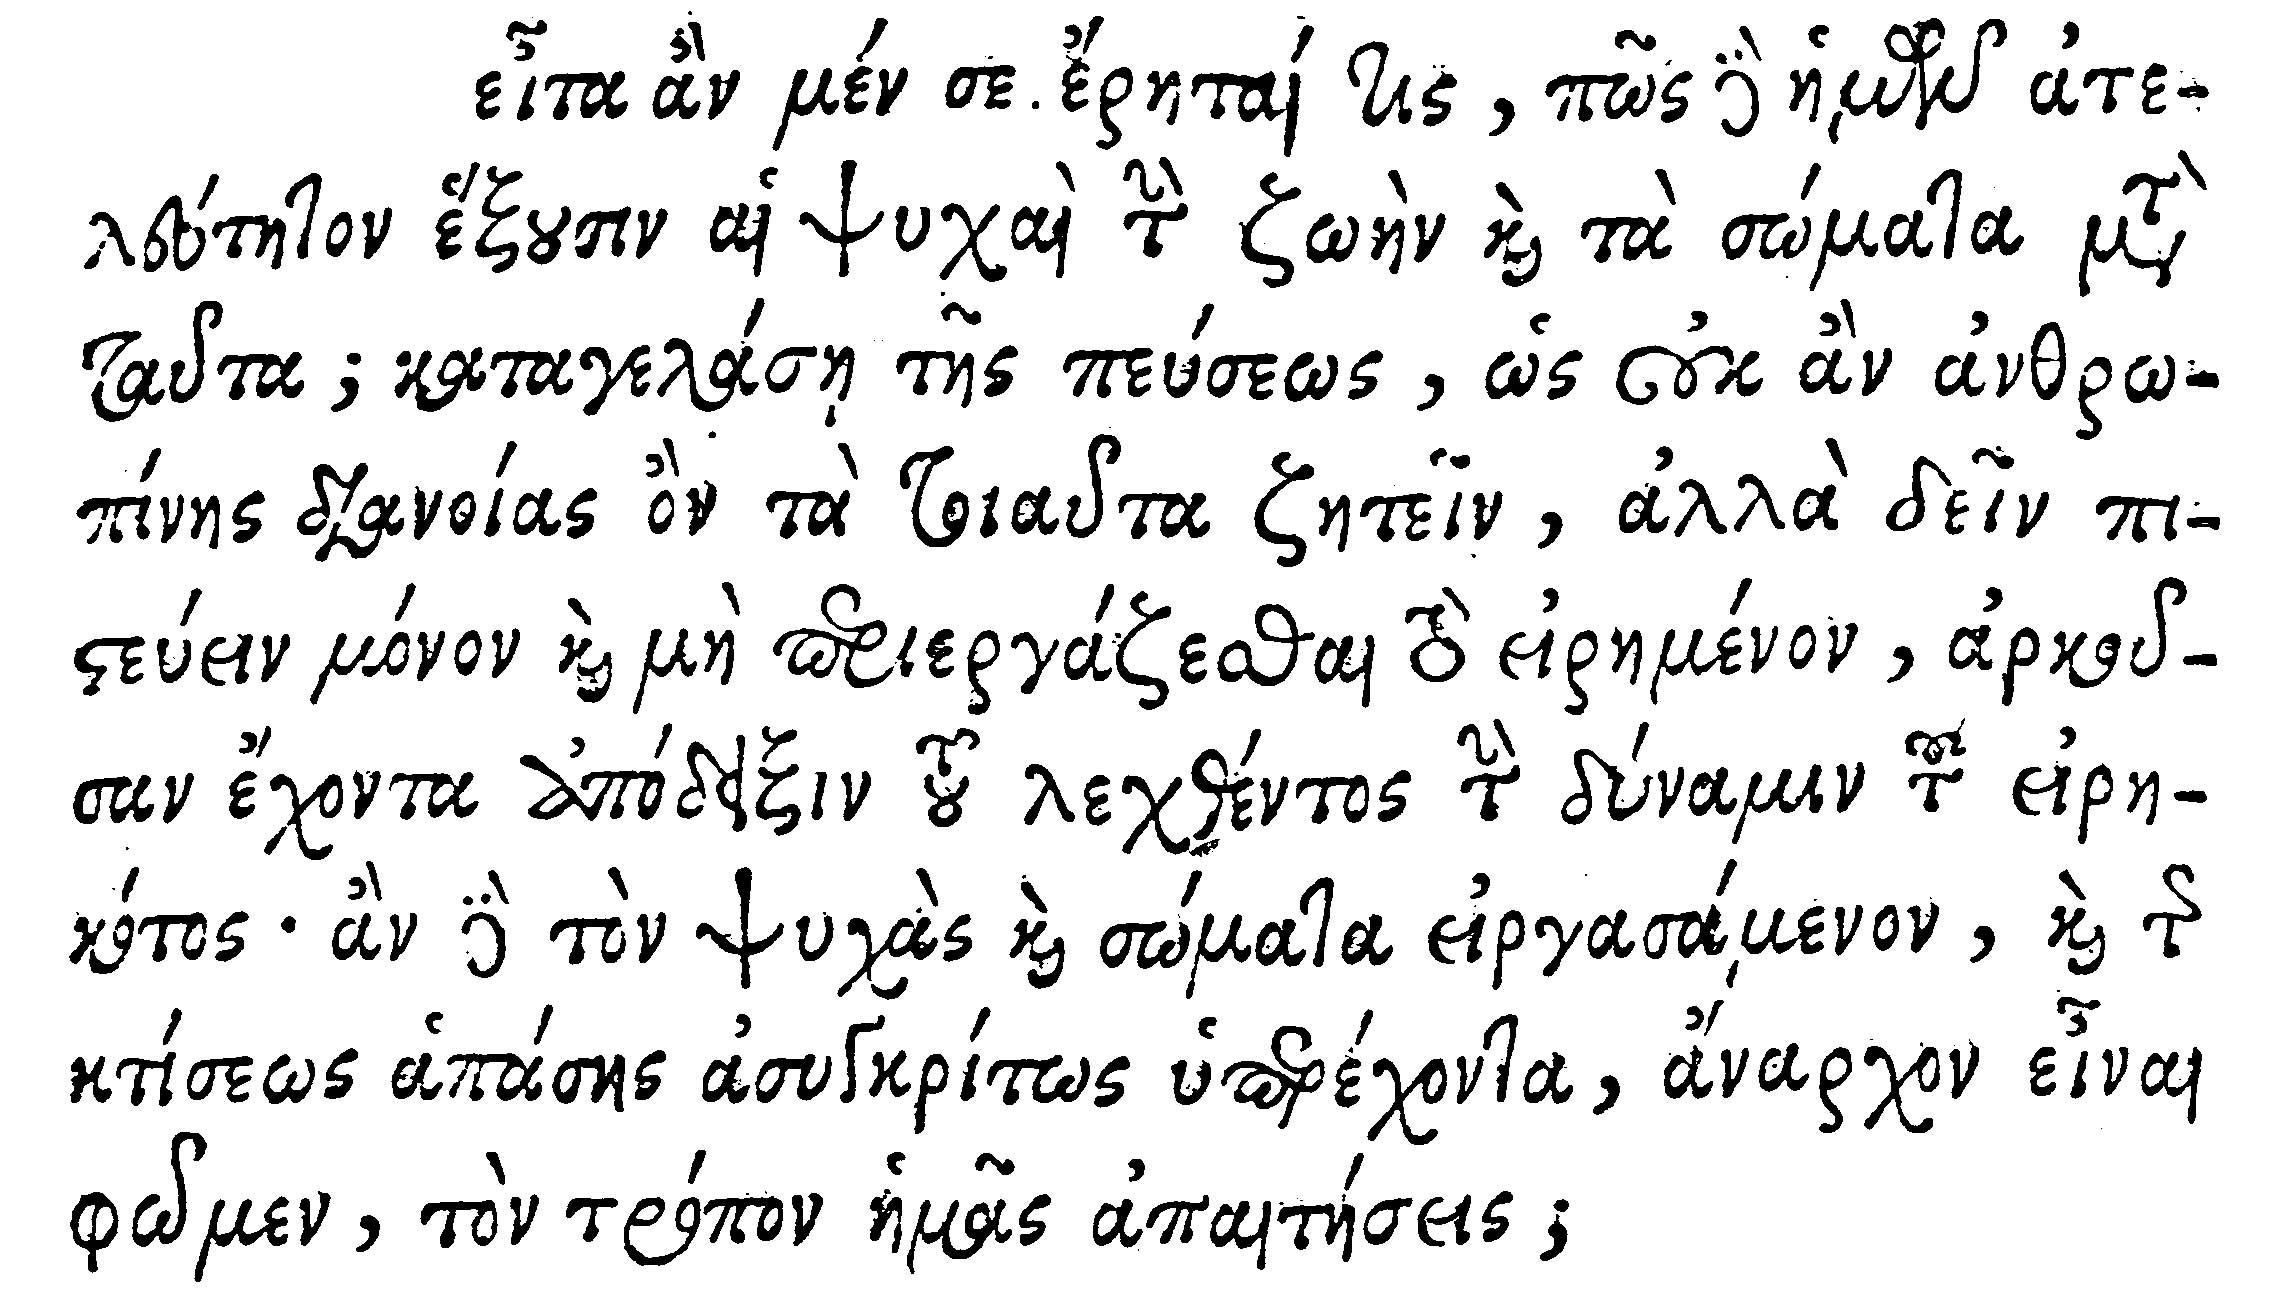 εἶτα ἂν μέν σε ἔρηταί τις, πῶς δὲ ἡμῶν ἀτε-
λεύτητον ἕξουσιν αἱ ψυχαὶ τὴν ζωὴν καὶ τὰ σώματα μετὰ
ταῦτα; καταγελάσῃ τῆς πεύσεως, ὡς οὐκ ἂν ἀνθρω-
πίνης διανοίας ὂν τὰ τοιαῦτα ζητεῖν, ἀλλὰ δεῖν πι-
στεύειν μόνον καὶ μὴ περιεργάζεσθαι τὸ εἰρημένον, ἀρκοῦ-
σαν ἔχοντα ἀπόδειξιν τοῦ λεχθέντος τὴν δύναμιν τοῦ εἰρη-
κότος· ἂν δὲ τὸν ψυχὰς καὶ σώματα εἰργασάμενον, καὶ τῆς
κτίσεως ἁπάσης ἀσυγκρίτως ὑπερέχοντα, ἄναρχον εἶναι
φῶμεν, τὸν τρόπον ἡμᾶς ἀπαιτήσεις;